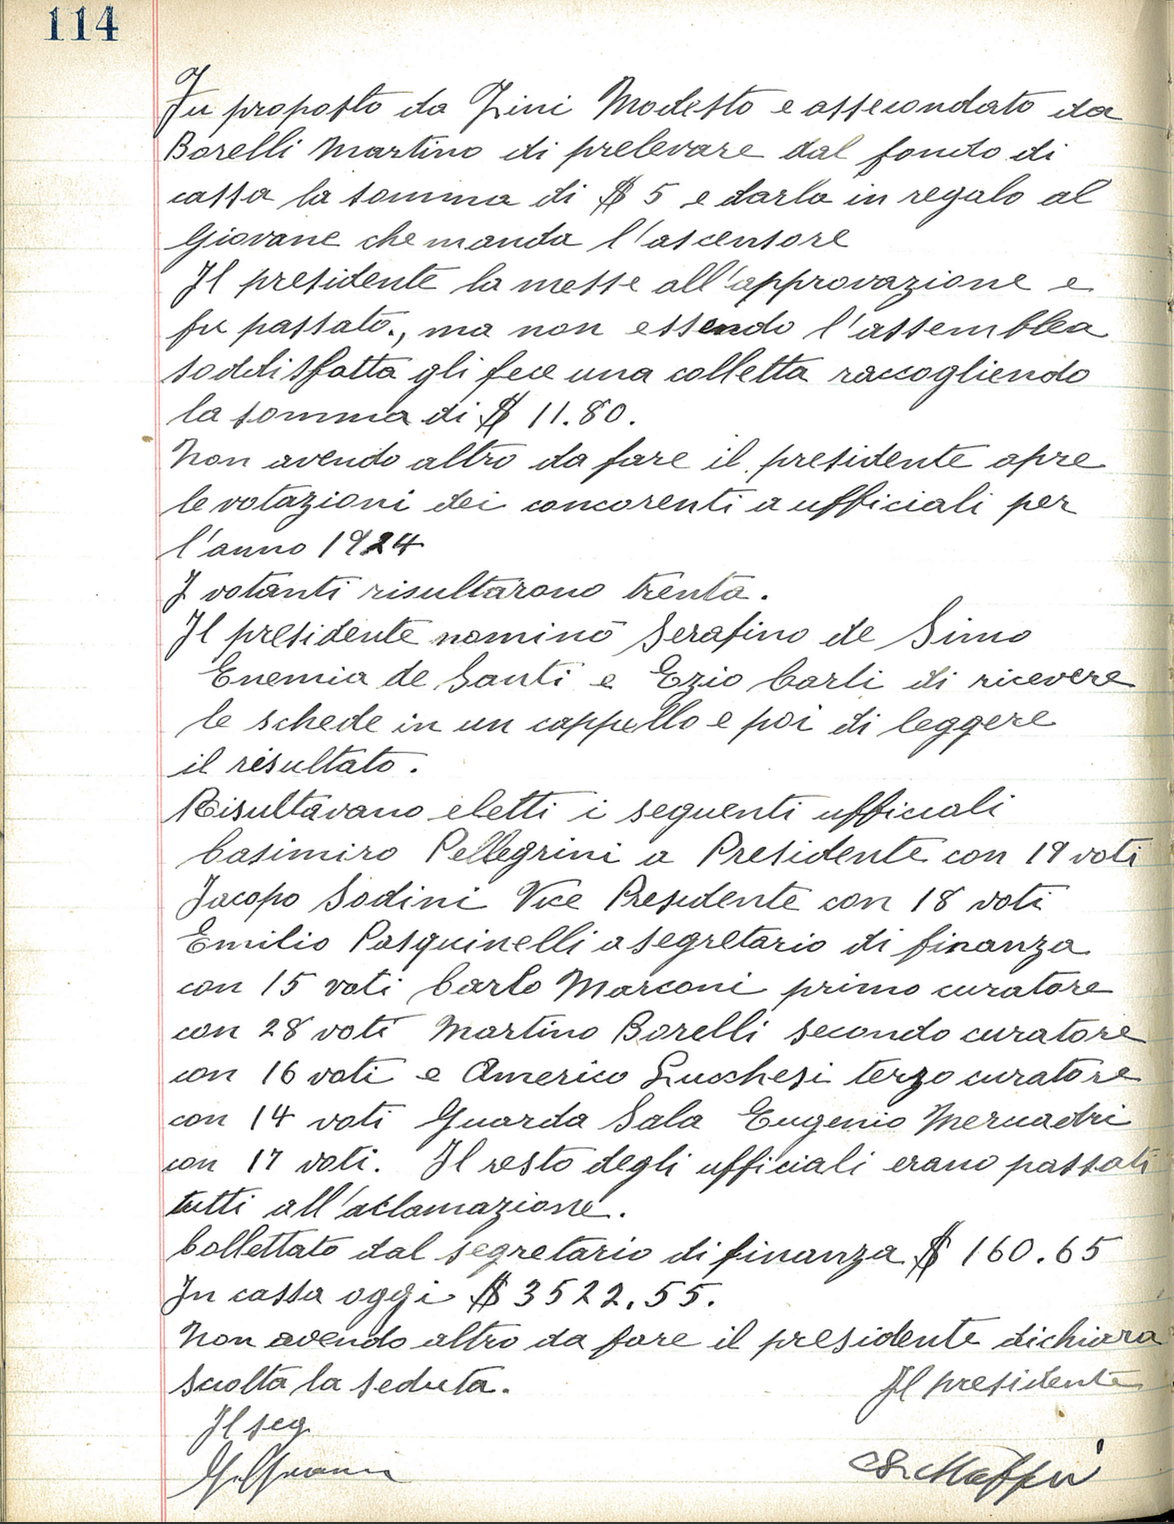 114
Fu proposto da Zini Modesto e assecondato da
Borelli Martino di prelevare dal fondo di
cassa la somma di $ 5 e darla in regalo al
Giovane che manda l'ascensore
Il presidente la messe all'approvazione e
fu passato., ma non essendo l'assemblea
soddisfatta gli fece una colletta raccogliendo
la somma di $ 11.80.
Non avendo altro da fare il presidente apre
le votazioni dei concorenti a ufficiali per
l'anno 1924
I votanti risultarono trenta.
Il presidente nominò Serafino de Simo
Enemia de Santi e Ezio Carli di ricevere
le schede in un cappello e poi di leggere
il risultato.
Risultavano eletti i seguenti ufficiali
Casimiro Pellegrini a Presidente con 19 voti
Jacopo Sodini Vice Presidente con 18 voti
Emilio Pasquinelli a segretario di finanza
con 15 voti Carlo Marconi primo curatore
con 28 voti Martino Borelli secondo curatore
con 16 voti e Americo Lucchesi terzo curatore
con 14 voti Guarda Sala Eugenio
con 17 voti. Il resto degli ufficiali erano passati
tutti all'aclamazione.
Collettato dal segretario di finanza $ 160.65
In cassa oggi $ 3522.55.
Non avendo altro da fare il presidente dichiara
sciolta la seduta. Il presidente
Il seg